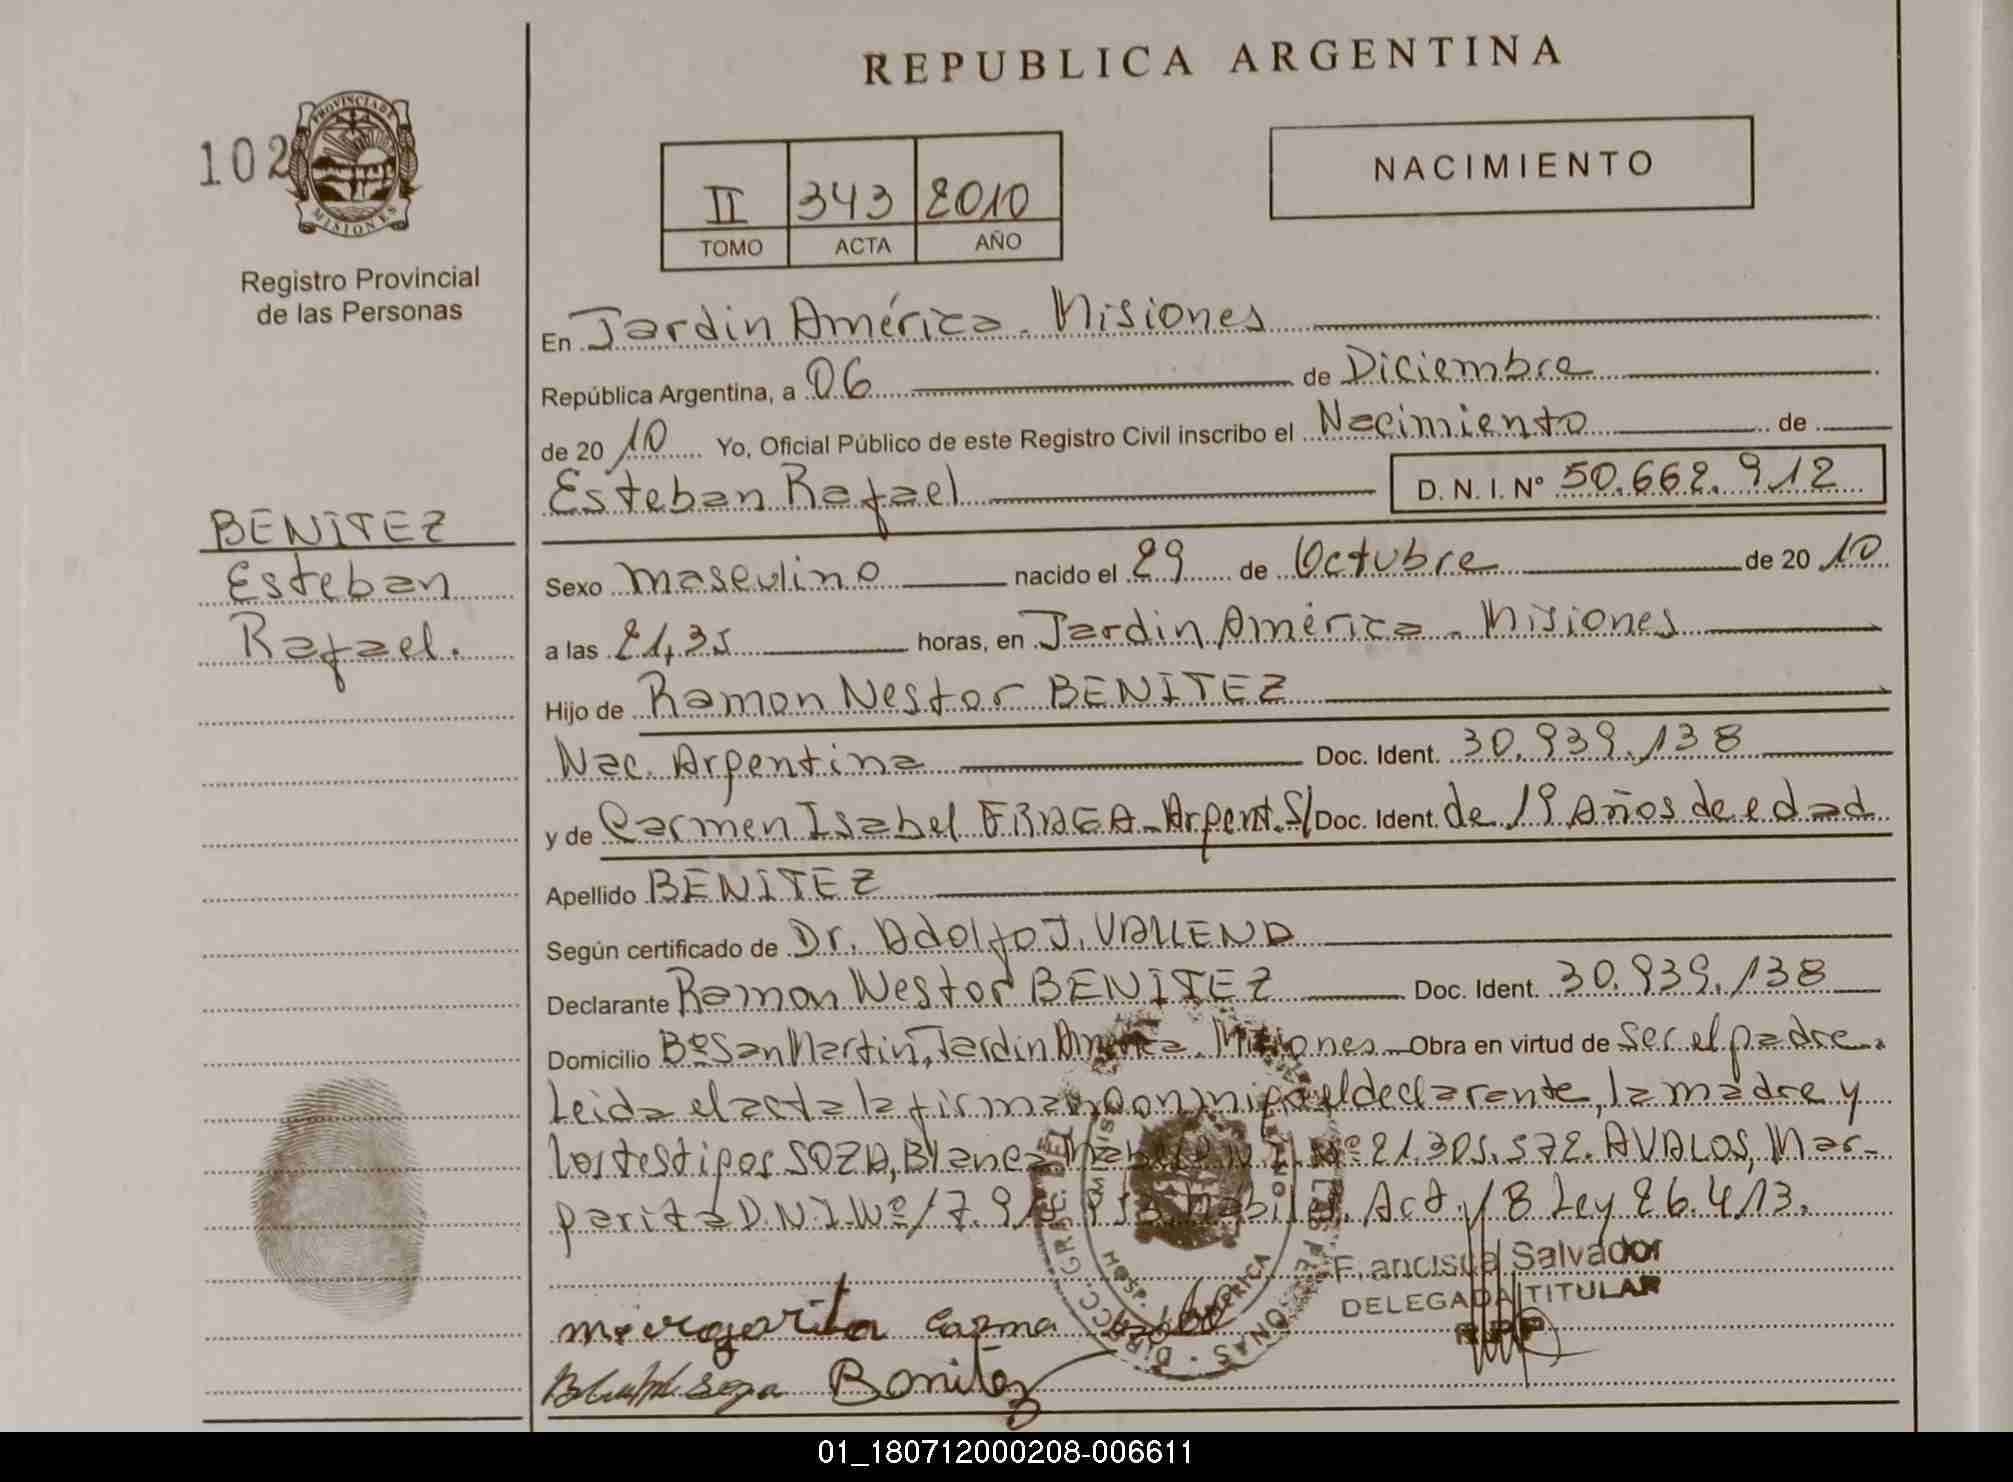 REPUBLICA ARGENTINA
102
PROVINCIA DE
MISIONES
Registro Provincial
de las Personas
II 343 2010
TOMO ACTA AÑO
NACIMIENTO
En Jardin América - Misiones
República Argentina, a 06 de Diciembre
de 20 10 Yo, Oficial Público de este Registro Civil inscribo el Nacimiento de
Esteban Rafael D. N. I. Nº 50.662.912
BENITEZ
Esteban
Rafael.
Sexo masculino nacido el 29 de Octubre de 20 10
a las 21,35 horas, en Jardin América - Misiones
Hijo de Ramon Nestor BENITEZ
Nac. Argentina Doc. Ident. 30.939.138
y de Carmen Isabel Argent. S/ Doc. Ident. de 19 Años de edad
Apellido BENITEZ
Según certificado de Dr. Adolfo J. VALLEND
Declarante Ramon Nestor BENITEZ Doc. Ident. 30.939.138
Domicilio Bº San Martin, Jardin América - Misiones Obra en virtud de ser el padre.
Leida el acta la firman conmigo el declarante, la madre y
los testigos SOZA, Blanca D.N.I. Nº 21.305.572. AVALOS, Mar-
garita D.N.I. Nº 17.9 habiles. Act. 18 Ley 26.413.
Francisca Salvador
DELEGADA TITULAR
R.P.P
margarita carma
soza Bonitez
01_180712000208-006611